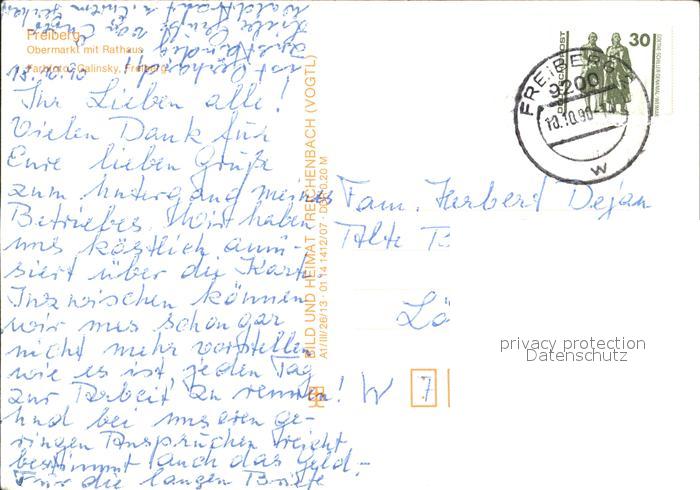 Freiberg
Obermarkt mit Rathaus
Farbfoto: Galinsky, Freiberg
Ihr Lieben alle!
Vielen Dank für
Eure lieben Grüße
zum Untergang meines
Betriebes. Wir haben
uns köstlich amü-
siert über die Karte.
Inzwischen können
wir uns schon gar
nicht mehr vorstellen
wie es ist, jeden Tag
zur Arbeit zu rennen!
Und bei unseren ge-
ringen Ansprüchen reicht
bestimmt auch das Geld.
Für die langen Briefe
BILD UND HEIMAT REICHENBACH (VOGTL)
A1/III/26/13 · 01 14 1412/07 · DDR 0,20 M
30
FREIBERG
9200
10.10.90
W
Fam. Herbert Dejan
Alte
Lö
W 7
privacy protection
Datenschutz